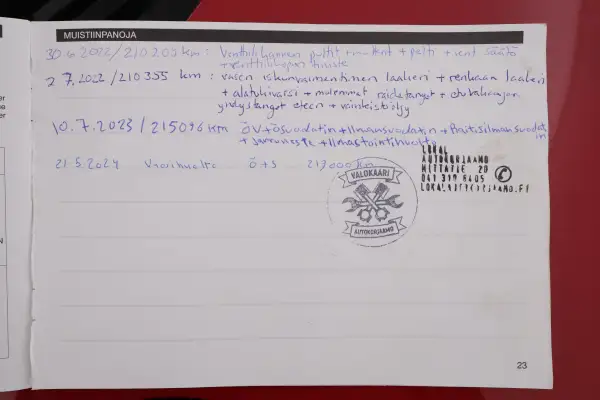 MUISTIINPANOJA
30.6.2022/210203 km: Venttiilikannen pultit + + pelti + vent säätö
+ venttiilikopan tiiviste
2.7.2022/210355 km: vasen iskunvaimentimen laakeri + renkaan laakeri
+ alatukivarsi + molemmat raidetangot + etukallistajan
yhdystangot eteen + vaihteistoöljy
10.7.2023/215096 km öv + ösuodatin + ilmansuodatin + Raitisilmansuodat
in
+ jarruneste + ilmastointihuolto
21.5.2024 Vuosihuolto Ö+S km
LOKAL
AUTOKORJAAMO
MITTATIE 20
041 319 6405
VALOKAARI
AUTOKORJAAMO
23